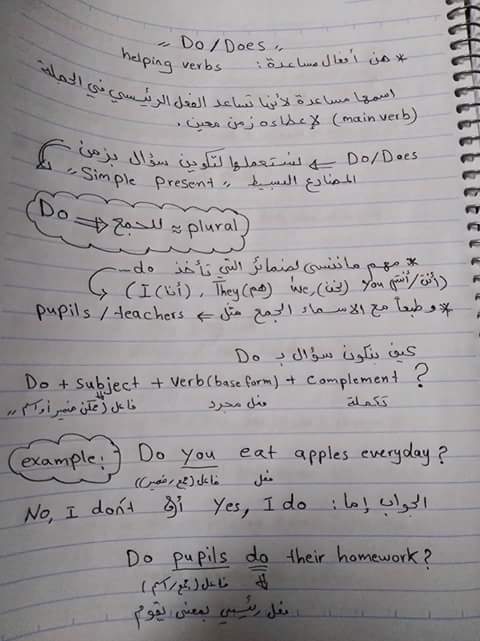 " Do/Does "
* هن أفعال مساعدة : helping verbs
اسمها مساعدة لأنها تساعد الفعل الرئيسي في الجملة
(main verb) لإعطاءه زمن معين .
Do/Does ← نستعملها لتكوين سؤال بزمن
المضارع البسيط " Simple Present "
Do ⇒ للجمع ≈ plural
* مهم ماننسى لضمائر التي تأخذ do -
(I (أنا) , They (هم) , We (نحن) , You (أنتَ/أنتم))
* وطبعاً مع الاسماء الجمع مثل ← pupils / teachers
كيف بنكون سؤال بـ Do
Do + subject + verb (base form) + complement ?
فاعل (ممكن ضمير أو اسم) فعل مجرد تكملة
example: Do you eat apples everyday ?
فاعل (جمع، ضمير) فعل
الجواب إما : Yes, I do أو No, I don't
Do pupils do their homework ?
فاعل (جمع، اسم)
فعل رئيسي بمعنى يقوم